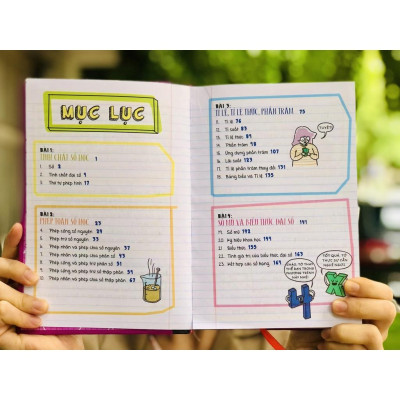 MỤC LỤC
BÀI 1:
TÍNH CHẤT SỐ HỌC 1
1. Số 2
2. Tính chất đại số 9
3. Thứ tự phép tính 17
BÀI 2:
PHÉP TOÁN SỐ HỌC 23
4. Phép cộng số nguyên 24
5. Phép trừ số nguyên 33
6. Phép nhân và phép chia số nguyên 39
7. Phép nhân và phép chia phân số 43
8. Phép cộng và phép trừ phân số 51
9. Phép cộng và phép trừ số thập phân 61
10. Phép nhân và phép chia số thập phân 67
BÀI 3:
TỈ LỆ, TỈ LỆ THỨC, PHẦN TRĂM 75
11. Tỉ lệ 76
12. Tỉ suất 83
13. Tỉ lệ thức 89
14. Phần trăm 98
15. Ứng dụng phần trăm 107
16. Lãi suất 123
17. Tỉ lệ phần trăm thay đổi 131
18. Bảng biểu và Tỉ lệ 135
BÀI 4:
SỐ MŨ VÀ BIỂU THỨC ĐẠI SỐ 141
19. Số mũ 142
20. Ký hiệu khoa học 149
21. Biểu thức 155
22. Tính giá trị của biểu thức đại số 163
23. Kết hợp các số hạng 169